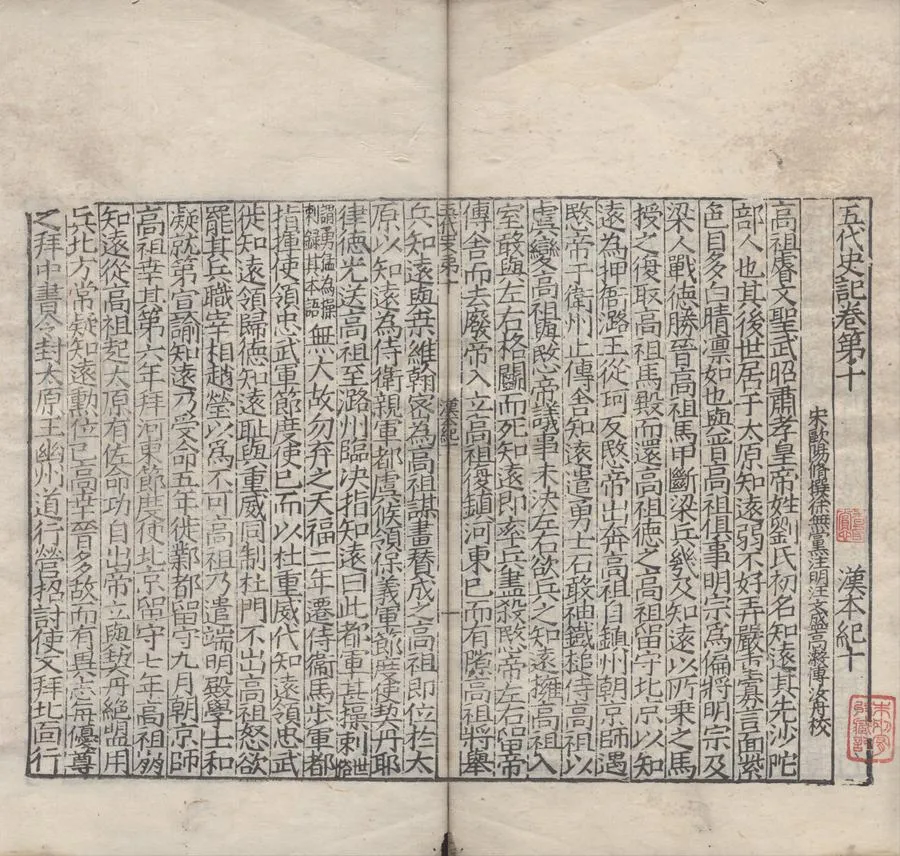 五代史記卷第十 漢本紀十
宋歐陽脩撰徐無黨注明汪文盛高瀔傅汝舟校
高祖睿文聖武昭肅孝皇帝姓劉氏初名知遠其先沙陀
部人也其後世居于太原知遠弱不好弄嚴重寡言面紫
色目多白睛凛如也與晉高祖俱事明宗為偏將明宗及
梁人戰德勝晉高祖馬甲斷梁兵幾及知遠以所乘之馬
授之復取高祖馬殿而還高祖德之高祖留守北京以知
遠為押衙潞王從珂反愍帝出奔高祖自鎮州朝京師遇
愍帝于衛州止傳舍知遠遣勇士石敢袖鐵槌侍高祖以
虞變高祖與愍帝議事未決左右欲兵之知遠擁高祖入
室敢與左右格鬬而死知遠即率兵盡殺愍帝左右留帝
傳舍而去廢帝入立高祖復鎮河東已而有隙高祖將舉
五代史第十 漢本紀 一
兵知遠與桑維翰密為高祖謀畫暦成之高祖即位於太
原以知遠為侍衛親軍都虞候領保義軍節度使契丹耶
律德光送高祖至潞州臨決指知遠曰此都軍甚操刺世俗
謂勇猛為操刺録其本語無大故勿弃之天福二年遷侍衛馬步軍都
指揮使領忠武軍節度使已而以杜重威代知遠領忠武
徙知遠領歸德知遠耻與重威同制杜門不出高祖怒欲
罷其兵職宰相趙瑩以為不可高祖乃遣端明殿學士和
凝就第宣諭知遠乃受命五年徙鄴都留守九月朝京師
高祖幸其第六年拜河東節度使北京留守七年高祖崩
知遠從高祖起太原有佐命功自出帝立與契丹絶盟用
兵北方常疑知遠勲位已高幸晉多故而有異志每優尊
之拜中書令封太原王幽州道行營招討使又拜北面行